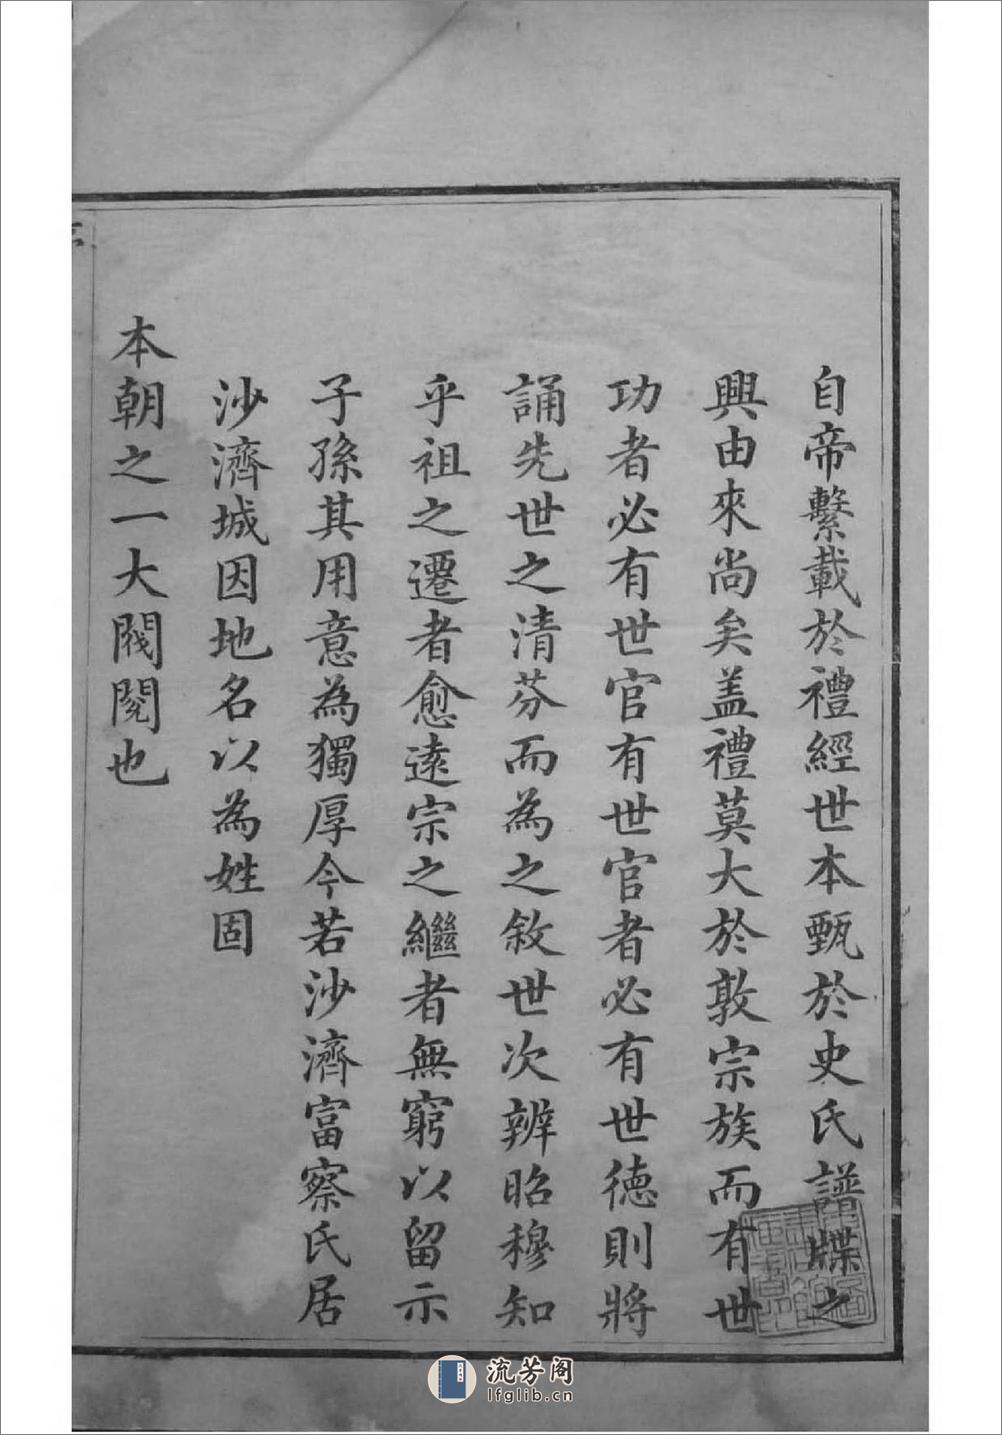 自帝繫載於禮經世本甄於史氏譜牒之
興由來尚矣盖禮莫大於敦宗族而有世
功者必有世官有世官者必有世德則將
誦先世之清芬而為之敘世次辨昭穆知
乎祖之遷者愈遠宗之繼者無窮以留示
子孫其用意為獨厚今若沙濟富察氏居
沙濟城因地名以為姓固
本朝之一大閥閱也
流芳阁
lfglib.cn